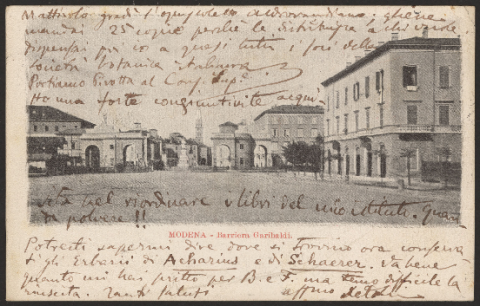 Mattirolo gradì l'opuscoletto aldrovandiano. gliene
mandai 25 copie perché le distribuisca a chi vuole
dispensai poi io a quasi tutti i soci della
Società botanica italiana
Portiamo Pirotta al Cons. Sup.
Ho una forte congiuntivite acqui
sta nel riordinare i libri del mio istituto. Quan
ta polvere!!
MODENA - Barriera Garibaldi.
Potresti sapermi dire dove si trovino ora conserva
ti gli Erbarii di Acharius e di Schaerer. Va bene
quanto mi hai scritto per B. e F. ma temo difficile la
riuscita. Tanti saluti
affmo